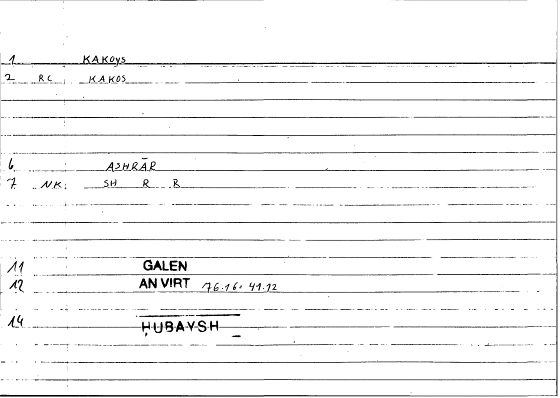 1 KAKOys
2 RC KAKOS
6 ASHRĀR
7 NK. SH R R
11 GALEN
12 AN VIRT 76.16. 41.12
14 ḤUBAYSH